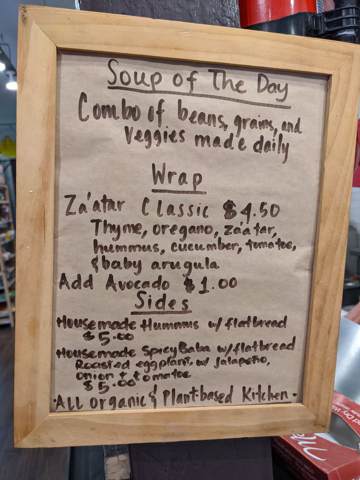 Soup of The Day
Combo of beans, grains, and
Veggies made daily
Wrap
Za'atar Classic $4.50
Thyme, oregano, za'atar,
hummus, cucumber, tomatoe,
& baby arugula
Add Avocado $1.00
Sides
Housemade Hummus w/ flatbread
$5.00
Housemade Spicy Baba w/ flatbread
Roasted eggplant, w/ jalapeño,
onion + tomatoe
$5.00
·All organic & Plant-based Kitchen·